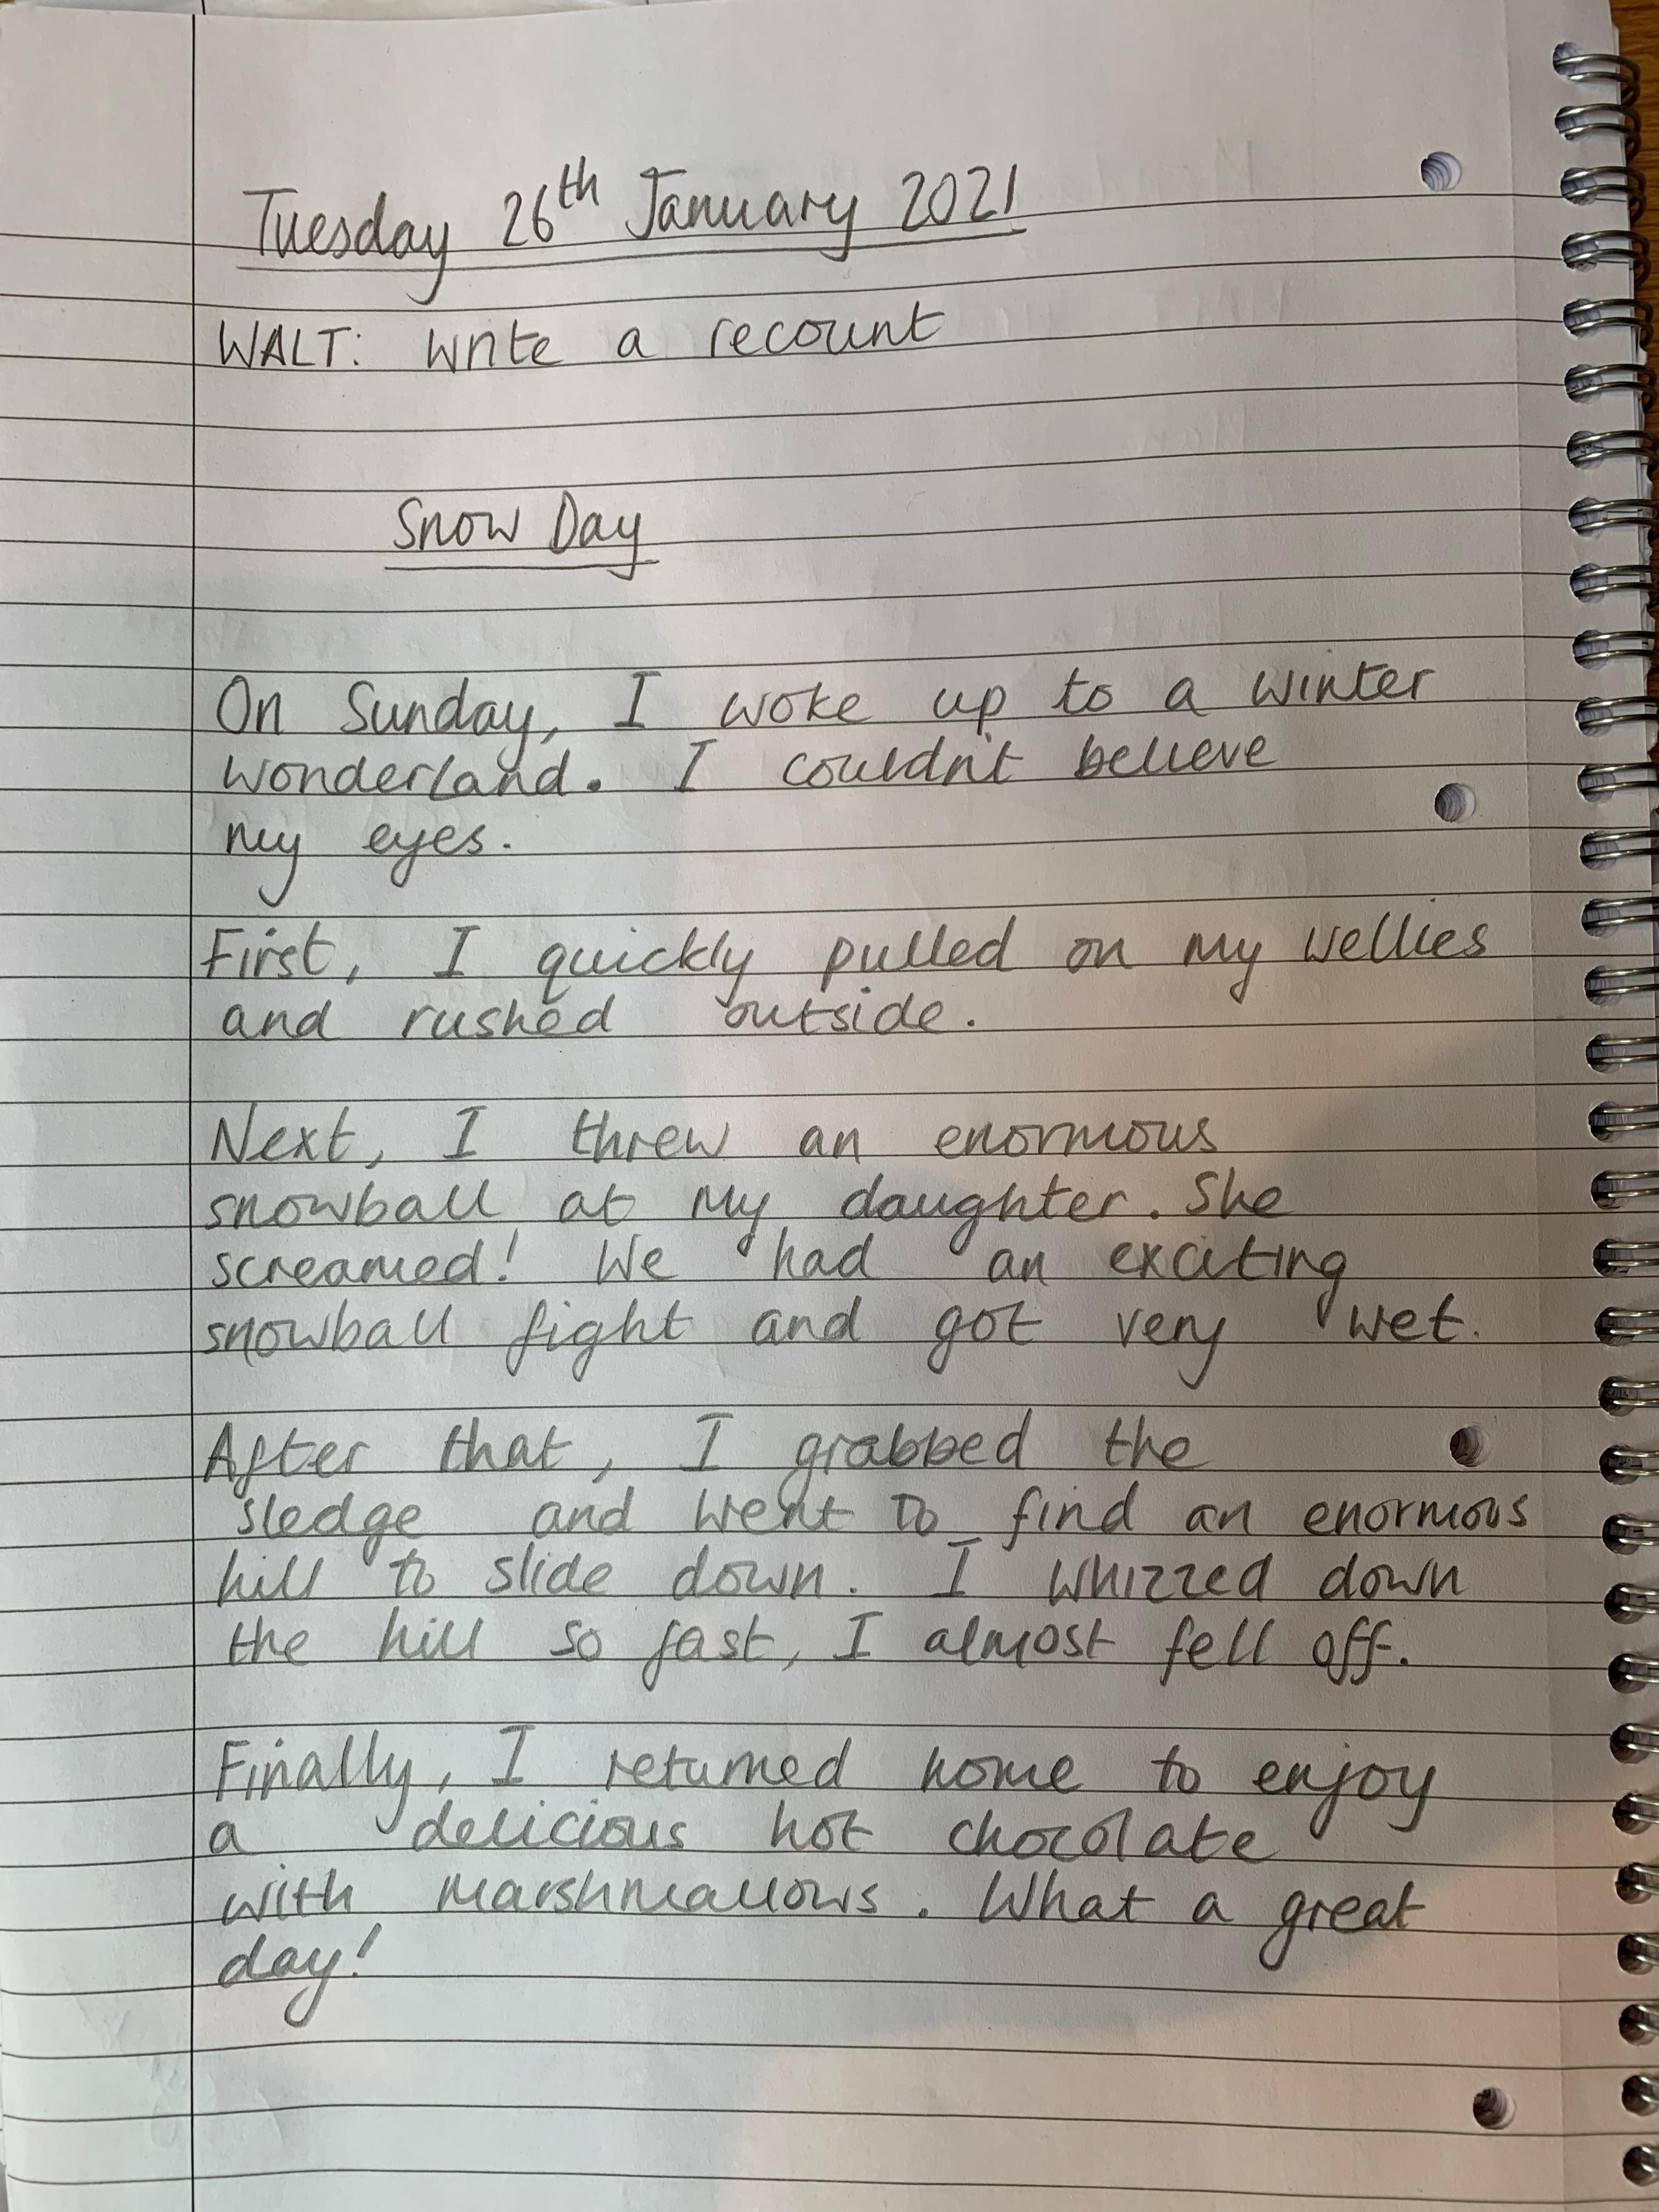 Tuesday 26th January 2021
WALT: write a recount
Snow Day
On Sunday, I woke up to a winter
wonderland. I couldn't believe
my eyes.
First, I quickly pulled on my wellies
and rushed outside.
Next, I threw an enormous
snowball at my daughter. She
screamed! We had an exciting
snowball fight and got very wet.
After that, I grabbed the
sledge and went to find an enormous
hill to slide down. I whizzed down
the hill so fast, I almost fell off.
Finally, I returned home to enjoy
a delicious hot chocolate
with marshmallows. What a great
day!